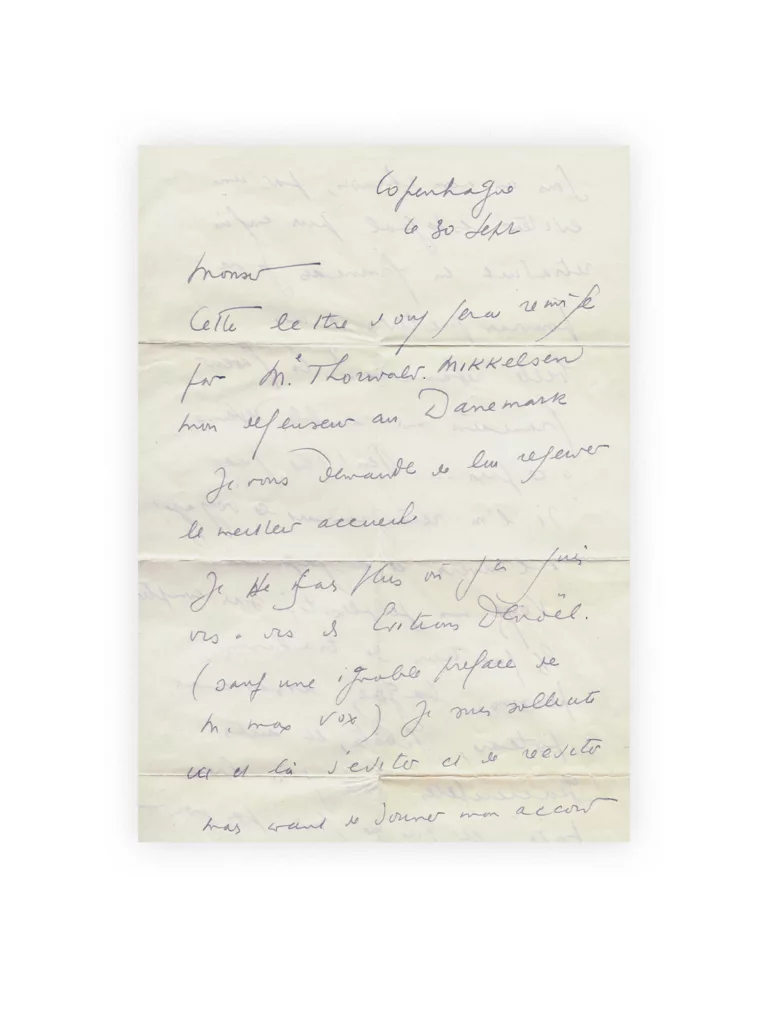 Copenhague
le 30 Sept
Monsieur
Cette lettre vous sera remise
par Me Thorwald. MIKKELSEN
mon defenseur au Danemark
Je vous demande de lui reserver
le meilleur accueil
Je ne sais plus où j'en suis
vis à vis des Editions Denoël.
(sauf une ignoble preface de
M. Max Vox) Je suis sollicité
ici et là d'editer et de reediter
mais avant de donner mon accord